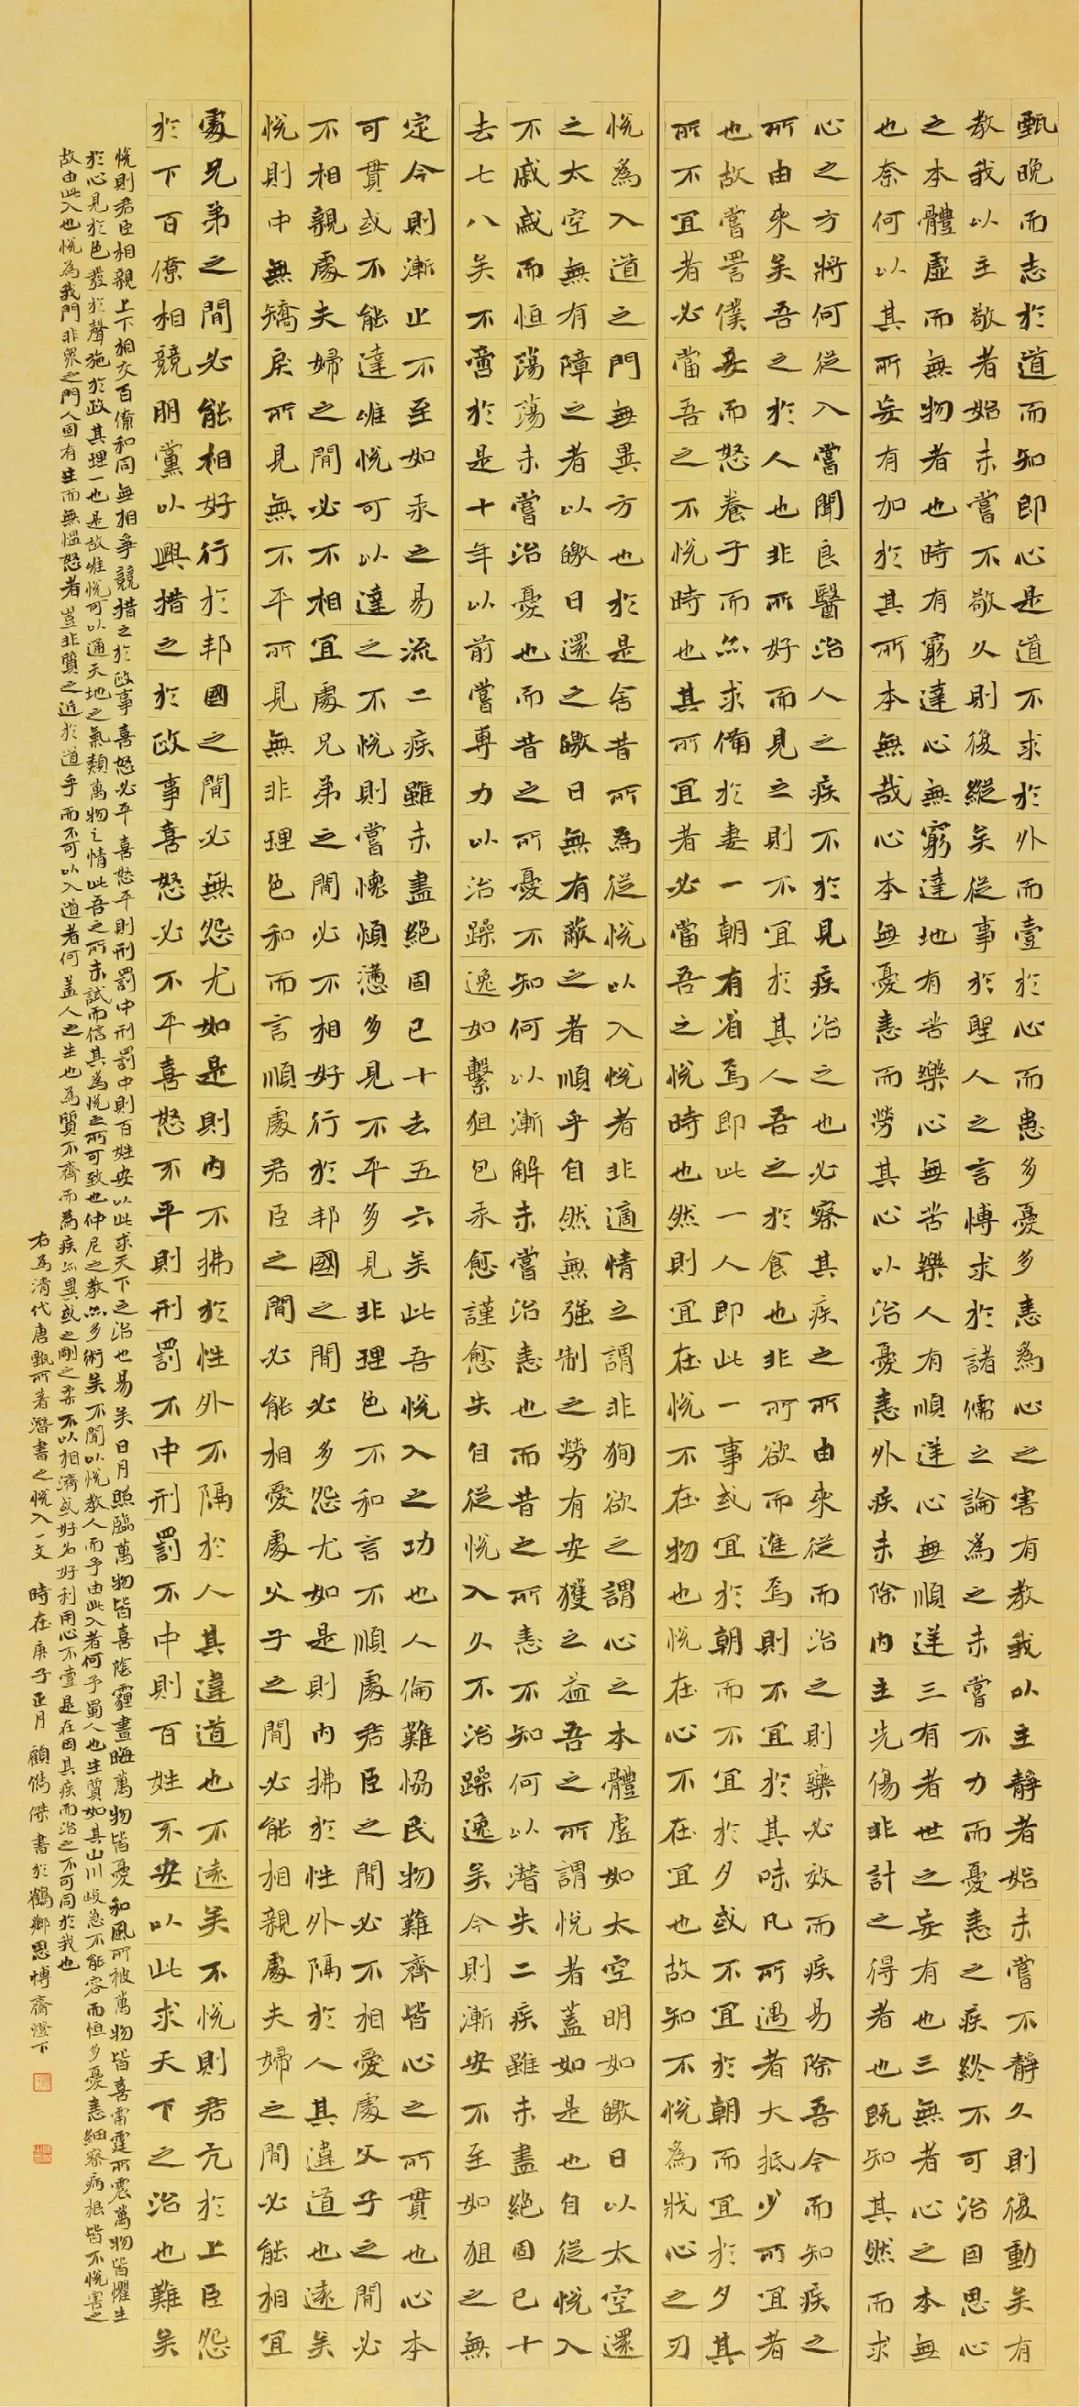 甄晚而志於道而知即心是道不求於外而壹於心而患多憂多恚為心之害有教我以主靜者始未嘗不靜久則復動矣有
教我以主敬者始未嘗不敬久則復縱矣從事於聖人之言博求於諸儒之論為之未嘗不力而憂恚之疾終不可治因思心
之本體虛而無物者也時有窮達心無窮達地有苦樂心無苦樂人有順逆心無順逆三有者世之妄有也三無者心之本無
也奈何以其所妄有加於其所本無哉心本無憂恚而勞其心以治憂恚外疾未除內主先傷非計之得者也既知其然而求
心之方將何從入嘗聞良醫治人之疾不於見疾治之也必察其疾之所由來從而治之則藥必效而疾易除吾今而知疾之
所由來矣吾之於人也非所好而見之則不宜於其人吾之於食也非所欲而進焉則不宜於其味凡所遇者大抵少所宜者
也故嘗詈僕妾而怒養子而亦求備於妻一朝有省焉即此一人即此一事或宜於朝而不宜於夕或不宜於朝而宜於夕其
所不宜者必當吾之不悅時也其所宜者必當吾之悅時也然則宜在悅不在物也悅在心不在宜也故知不悅為戕心之刃
悅為入道之門無異方也於是舍昔所為從悅以入悅者非適情之謂非狥欲之謂心之本體虛如太空明如皦日以太空還
之太空無有障之者以皦日還之皦日無有蔽之者順乎自然無强制之勞有安獲之益吾之所謂悅者蓋如是也自從悅入
不戚戚而恒蕩蕩未嘗治憂也而昔之所憂不知何以漸解未嘗治恚也而昔之所恚不知何以潛失二疾雖未盡絕固已十
去七八矣不啻於是十年以前嘗專力以治躁逸如繫狙包汞愈謹愈失自從悅入久不治躁逸矣今則漸安不至如狙之無
定今則漸止不至如汞之易流二疾雖未盡絕固已十去五六矣此吾悅入之功也人倫難協民物難齊皆心之所貫也心本
可貫或不能達唯悅可以達之不悅則嘗懷煩懣多見不平多見非理色不和言不順處君臣之間必不相愛處父子之間必
不相親處夫婦之間必不相宜處兄弟之間必不相好行於邦國之間必多怨尤如是則內拂於性外隔於人其違道也遠矣
悅則中無矯戾所見無不平所見無非理色和而言順處君臣之間必能相愛處父子之間必能相親處夫婦之間必能相宜
處兄弟之間必能相好行於邦國之間必無怨尤如是則內不拂於性外不隔於人其違道也不遠矣不悅則君亢於上臣怨
於下百僚相競朋黨以興措之於政事喜怒必不平喜怒不平則刑罰不中刑罰不中則百姓不安以此求天下之治也難矣
悅則君臣相親上下相交百僚和同無相爭競措之於政事喜怒必平喜怒平則刑罰中刑罰中則百姓安以此求天下之治也易矣日月照臨萬物皆喜陰霾晝晦萬物皆憂和風所被萬物皆喜雷霆所震萬物皆懼生
於心見於色發於聲施於政其理一也是故唯悅可以通天地之氣類萬物之情此吾之所未試而信其為悅之所可致也仲尼之教亦多術矣不聞以悅教人而予由此入者何予蜀人也生質如其山川峻急不能容而恒多憂恚細察病根皆不悅害之
故由此入也悅為我門非眾之門人固有生而無慍怒者豈非質之近於道乎而不可以入道者何蓋人之生也為質不齊而為疾亦異或之剛之柔不以相濟或好名好利用心不壹是在因其疾而治之不可同於我也
右為清代唐甄所著潛書之悅入一文 時在庚子正月 顧儁傑書於鶴鄉思博齋燈下